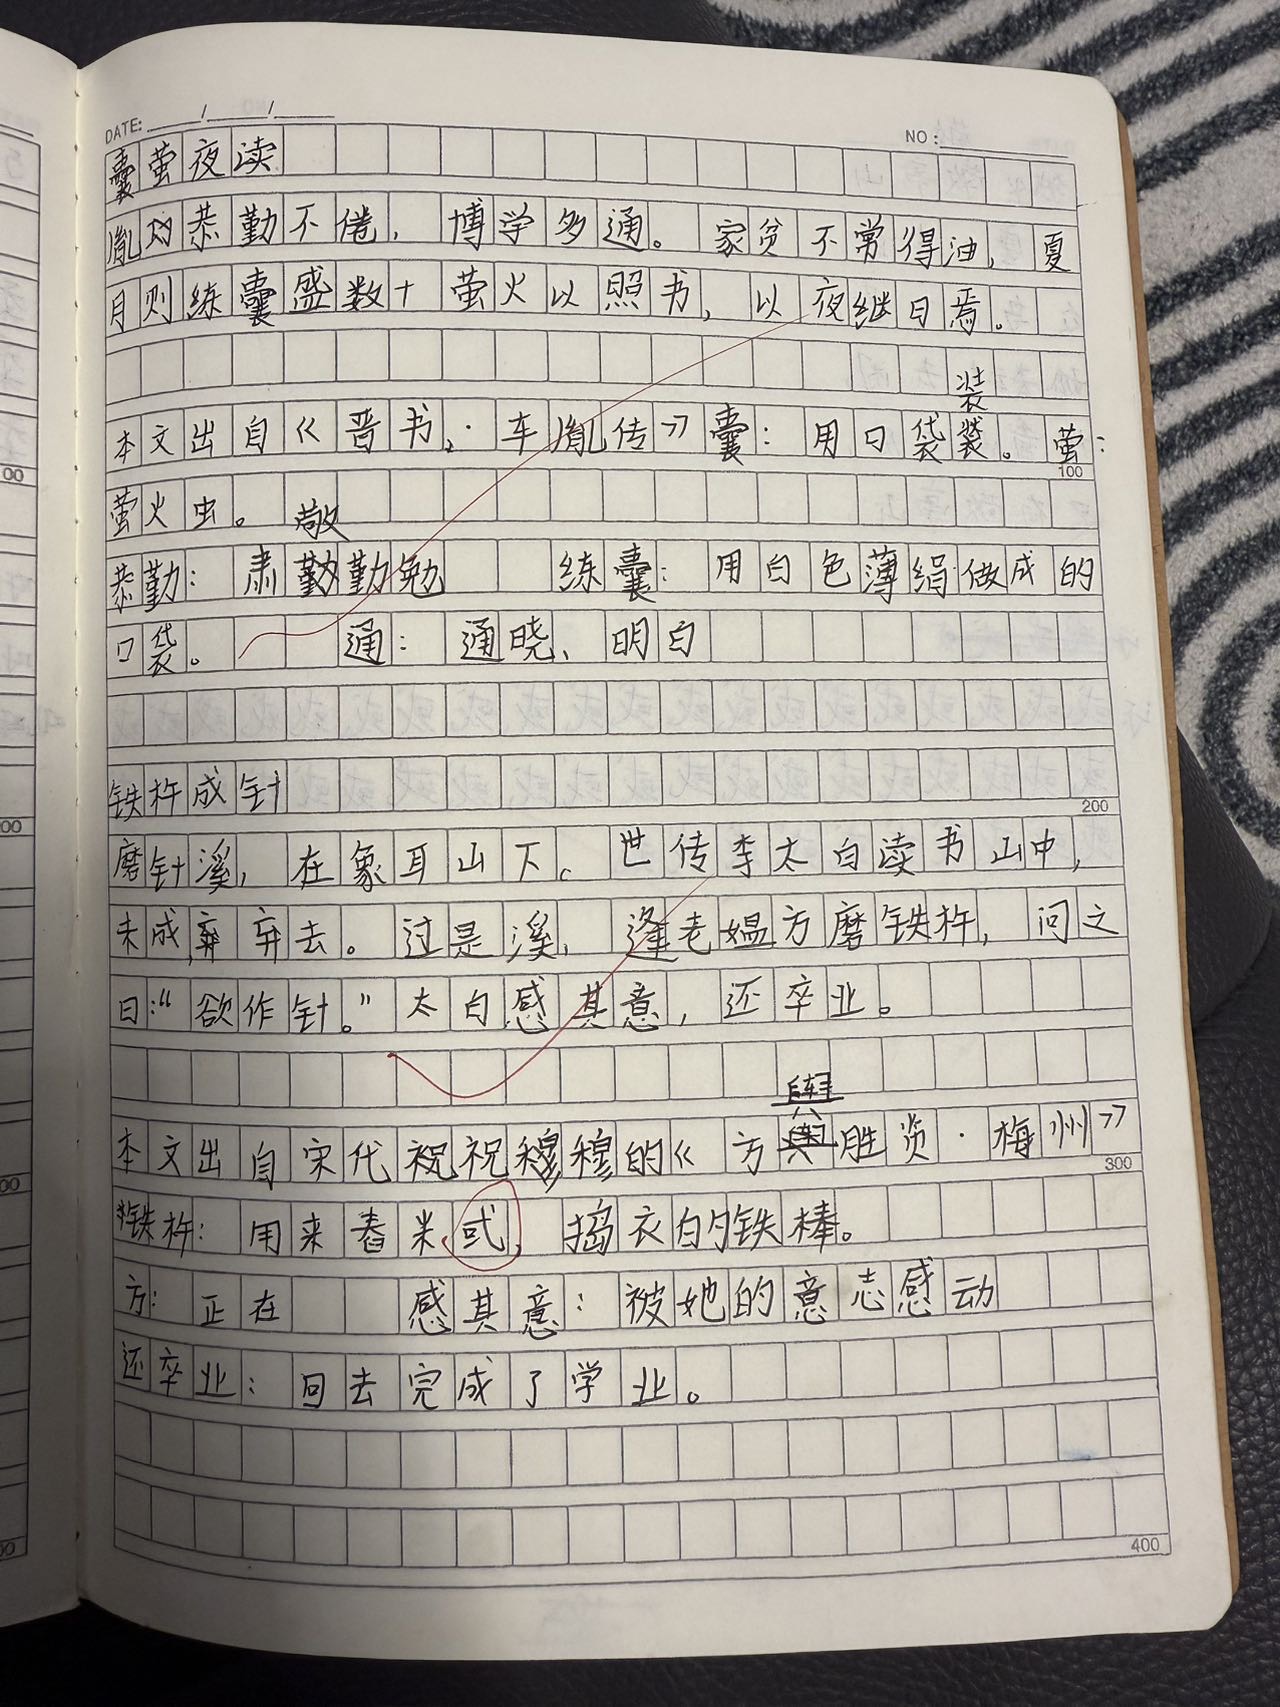 DATE: / /
NO:
囊萤夜读
胤恭勤不倦，博学多通。家贫不常得油，夏
月则练囊盛数十萤火以照书，以夜继日焉。
装
本文出自《晋书，·车胤传》囊：用口袋装。萤：
100
萤火虫。
敬
恭勤：肃勤勤勉 练囊：用白色薄绢做成的
口袋。 通：通晓、明白
铁杵成针
200
磨针溪，在象耳山下。世传李太白读书山中，
未成弃去。过是溪，逢老媪方磨铁杵，问之
曰：“欲作针。”太白感其意，还卒业。
舆
本文出自宋代祝祝穆穆的《方胜览·梅州》
300
铁杵：用来舂米或，捣衣的铁棒。
方：正在 感其意：被她的意志感动
还卒业：回去完成了学业。
400